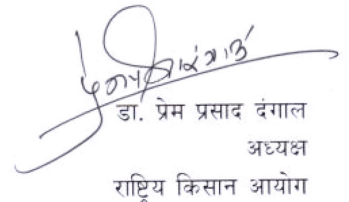 डा. प्रेम प्रसाद दंगाल
अध्यक्ष
राष्ट्रिय किसान आयोग